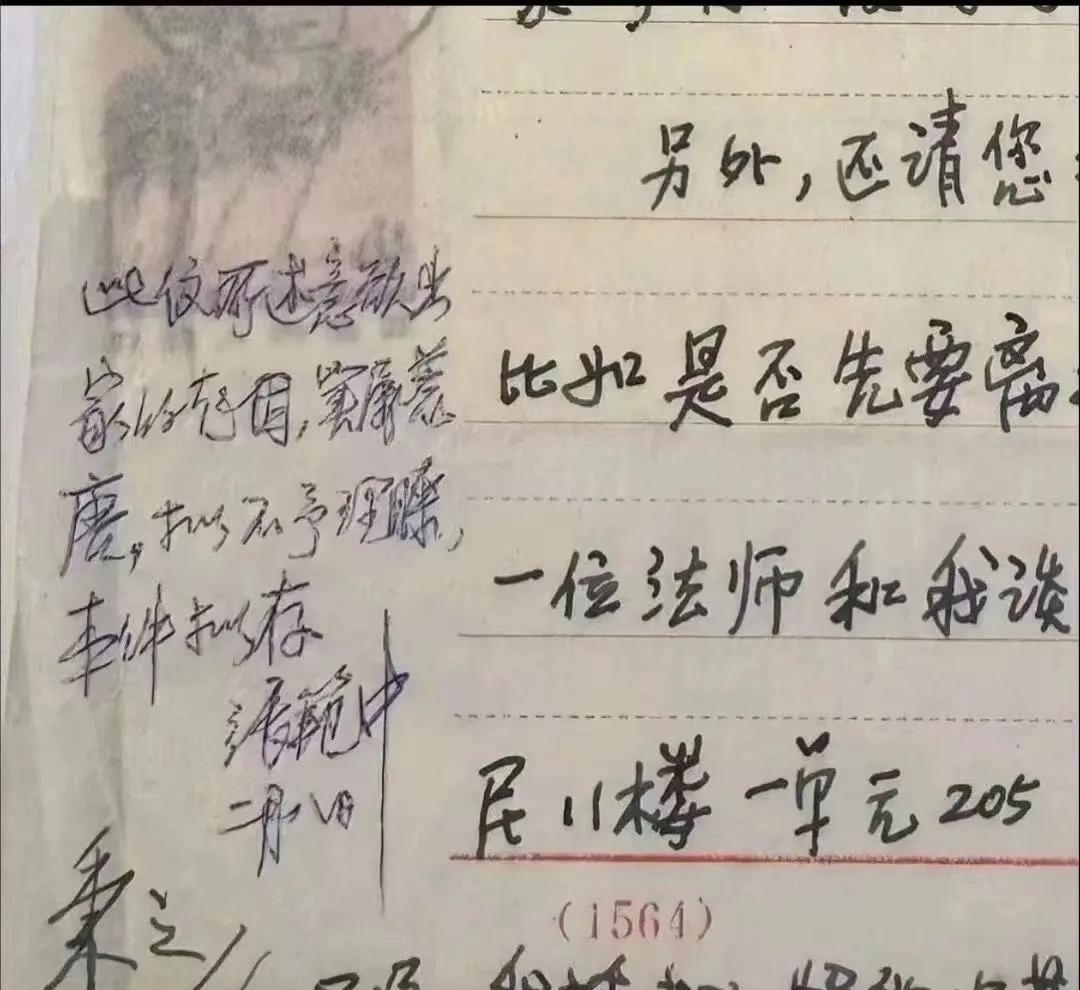 另外，还请您
比如是否先要离
一位法师和我谈
民11楼一单元205
(1564)
此信所述意欲出
家的起因，实属荒
唐，拟不予理睬，
事件拟存
张范中
二月八日